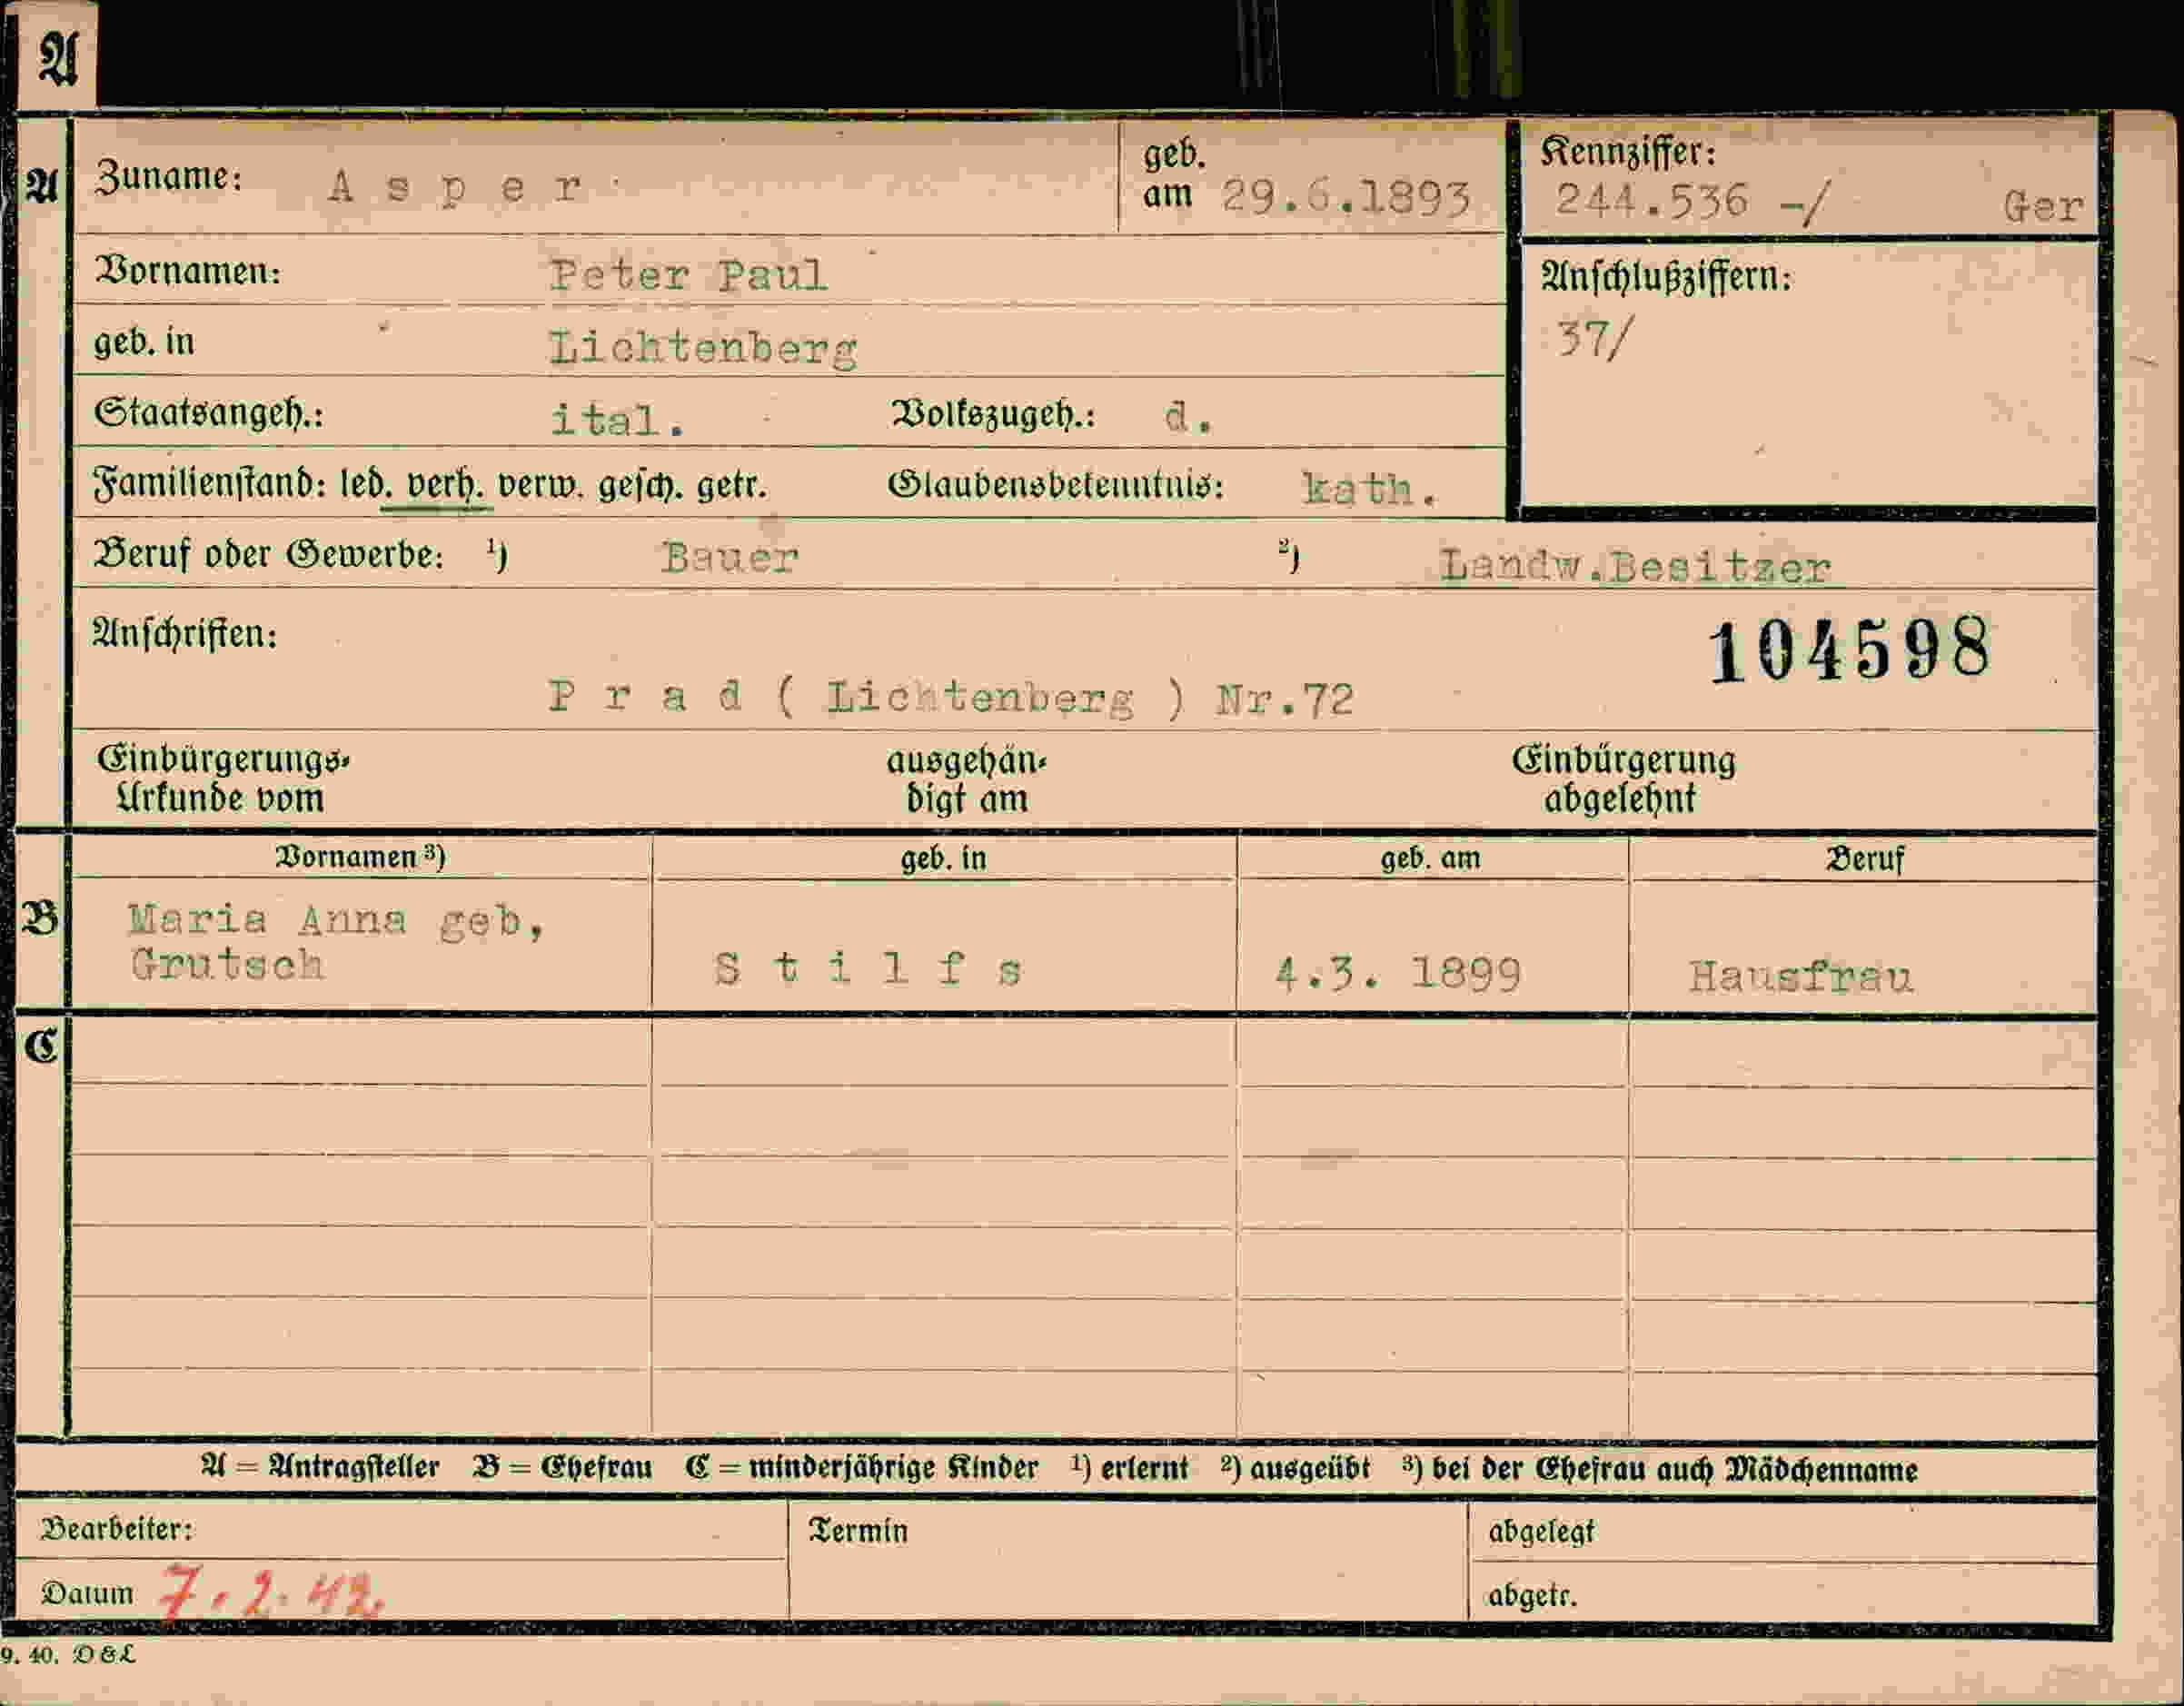 A
A
Zuname: Asper
geb. am 29.6.1893
Kennziffer:
244.536 -/ Ger
Vornamen: Peter Paul
Anschlußziffern:
37/
geb. in Lichtenberg
Staatsangeh.: ital. Volkszugeh.: d.
Familienstand: led. verh. verw. gesch. getr. Glaubensbekenntnis: kath.
Beruf oder Gewerbe: ¹) Bauer ²) Landw.Besitzer
Anschriften:
104598
Prad ( Lichtenberg ) Nr.72
Einbürgerungs- ausgehän- Einbürgerung
Urkunde vom digt am abgelehnt
Vornamen ³) geb. in geb. am Beruf
B
Maria Anna geb,
Grutsch Stilfs 4.3. 1899 Hausfrau
C
A = Antragsteller B = Ehefrau C = minderjährige Kinder ¹) erlernt ²) ausgeübt ³) bei der Ehefrau auch Mädchenname
Bearbeiter: Termin abgelegt
Datum 7.2.42. abgetr.
9. 40. D & L